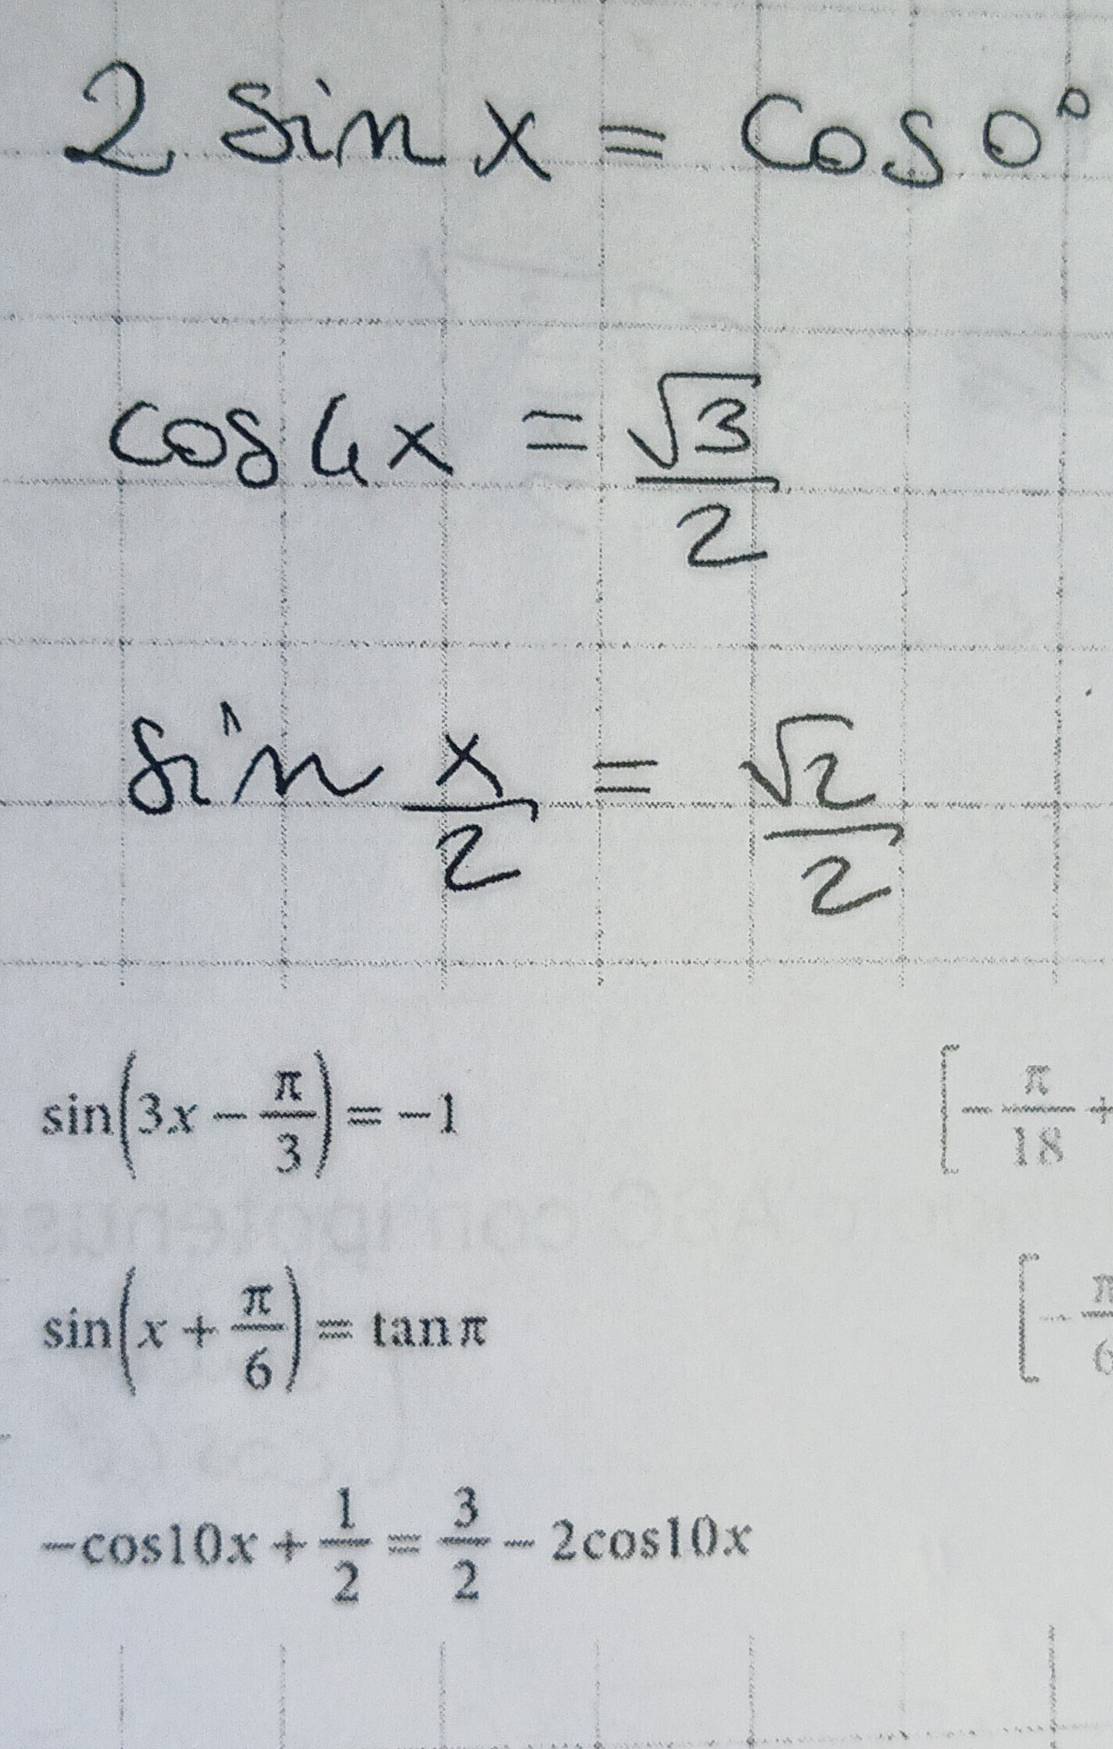 2 sin x = cos 0°
cos 4x = √3/2
sin x/2 = √2/2
sin(3x − π/3) = −1 [−π/18 +
sin(x + π/6) = tan π [−π/6
−cos10x + 1/2 = 3/2 − 2cos10x